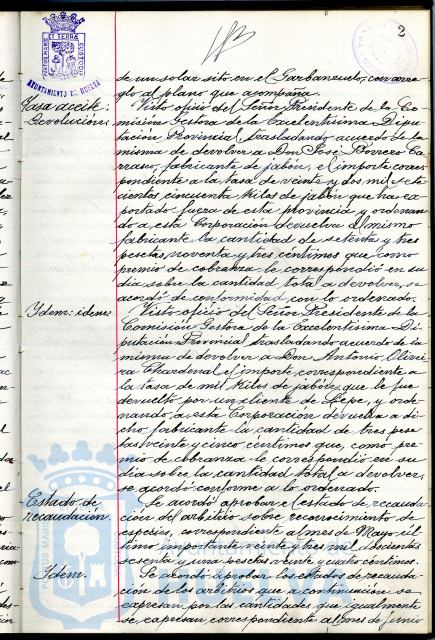 2
PORTUS MARIS ET TERRÆ CUSTODIA
AYUNTAMIENTO DE HUELVA
de un solar sito en el Garbanzuelo, con arre-
glo al plano que acompaña.
Tasa aceite:
Devolución:
Visto oficio del Señor Presidente de la Co-
misión Gestora de la Excelentísima Dipu-
tación Provincial, trasladando acuerdo de la
misma de devolver a Don José Borrero Ca-
rrasco, fabricante de jabón, el importe corres-
pondiente a la tasa de veinte y dos mil sete-
cientos cincuenta kilos de jabón que ha ex-
portado fuera de esta provincia y ordenan-
do a esta Corporación devuelva al mismo
fabricante la cantidad de setenta y tres
pesetas, noventa y tres céntimos que como
premio de cobranza le correspondió en su
dia sobre la cantidad total a devolver, se
acordó de conformidad con lo ordenado.
Ydem: idem:
Visto oficio del Señor Presidente de la
Comisión Gestora de la Excelentísima Di-
putación Provincial trasladando acuerdo de la
misma de devolver a Don Antonio
el importe, correspondiente a
la tasa de mil kilos de jabón, que le fue
devuelto por un cliente de Lepe, y orde-
nando, a esta Corporación devuelva a di-
cho fabricante la cantidad de tres pese-
tas veinte y cinco céntimos que, como pre-
mio de cobranza le correspondió en su
dia sobre la cantidad total a devolver,
se acordó conforme a lo ordenado.
Estado de
recaudación.
Se acordó aprobar el estado de recauda-
ción del arbitrio sobre reconocimiento de
especies, correspondiente al mes de Mayo úl-
timo importante veinte y tres mil doscientas
sesenta y una pesetas veinte y cuatro céntimos.
Ydem.
Se acordó aprobar los estados de recauda-
ción de los arbitrios que a continuación se
expresan por las cantidades que igualmente
se expresan, correspondiente al mes de junio